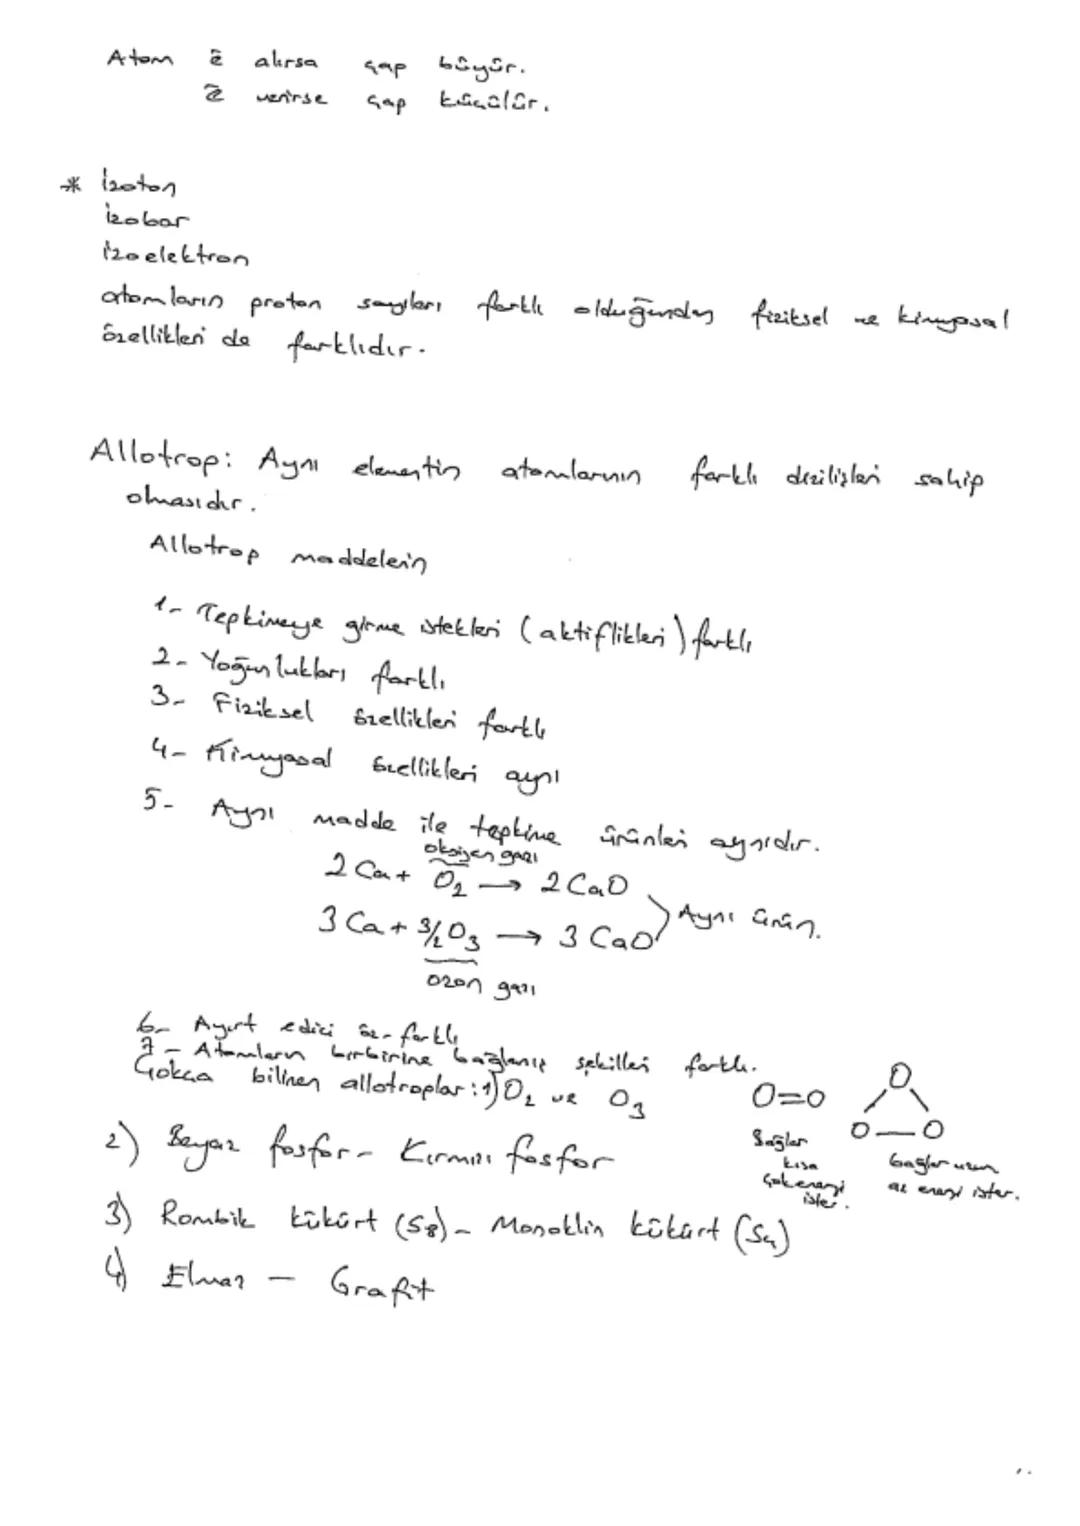 Atom ē alırsa çap büyür.
ē verirse çap küçülür.
* İzoton
İzobar
İzoelektron
atomların proton sayıları farklı olduğundan fiziksel ve kimyasal
özellikleri de farklıdır.
Allotrop: Aynı elementin atomlarının farklı dizilişleri sahip
olmasıdır.
Allotrop maddelerin
1- Tepkimeye girme istekleri (aktiflikleri) farklı
2- Yoğunlukları farklı
3- Fiziksel özellikleri farklı
4- Kimyasal özellikleri aynı
5- Aynı madde ile tepkime ürünleri aynıdır.
oksijen gazı
2 Ca + O₂ → 2 CaO
3 Ca + 3/2 O₃ → 3 CaO } Aynı ürün.
ozon gazı
6- Ayırt edici öz. farklı
7- Atomların birbirine bağlanış şekilleri farklı.
Çokça bilinen allotroplar: 1) O₂ ve O₃
O=O
O
O—O
Bağlar
kısa
çok enerji
ister.
bağlar uzun
az enerji ister.
2) Beyaz fosfor - Kırmızı fosfor
3) Rombik kükürt (S8) - Monoklin kükürt (S4)
4) Elmas - Grafit